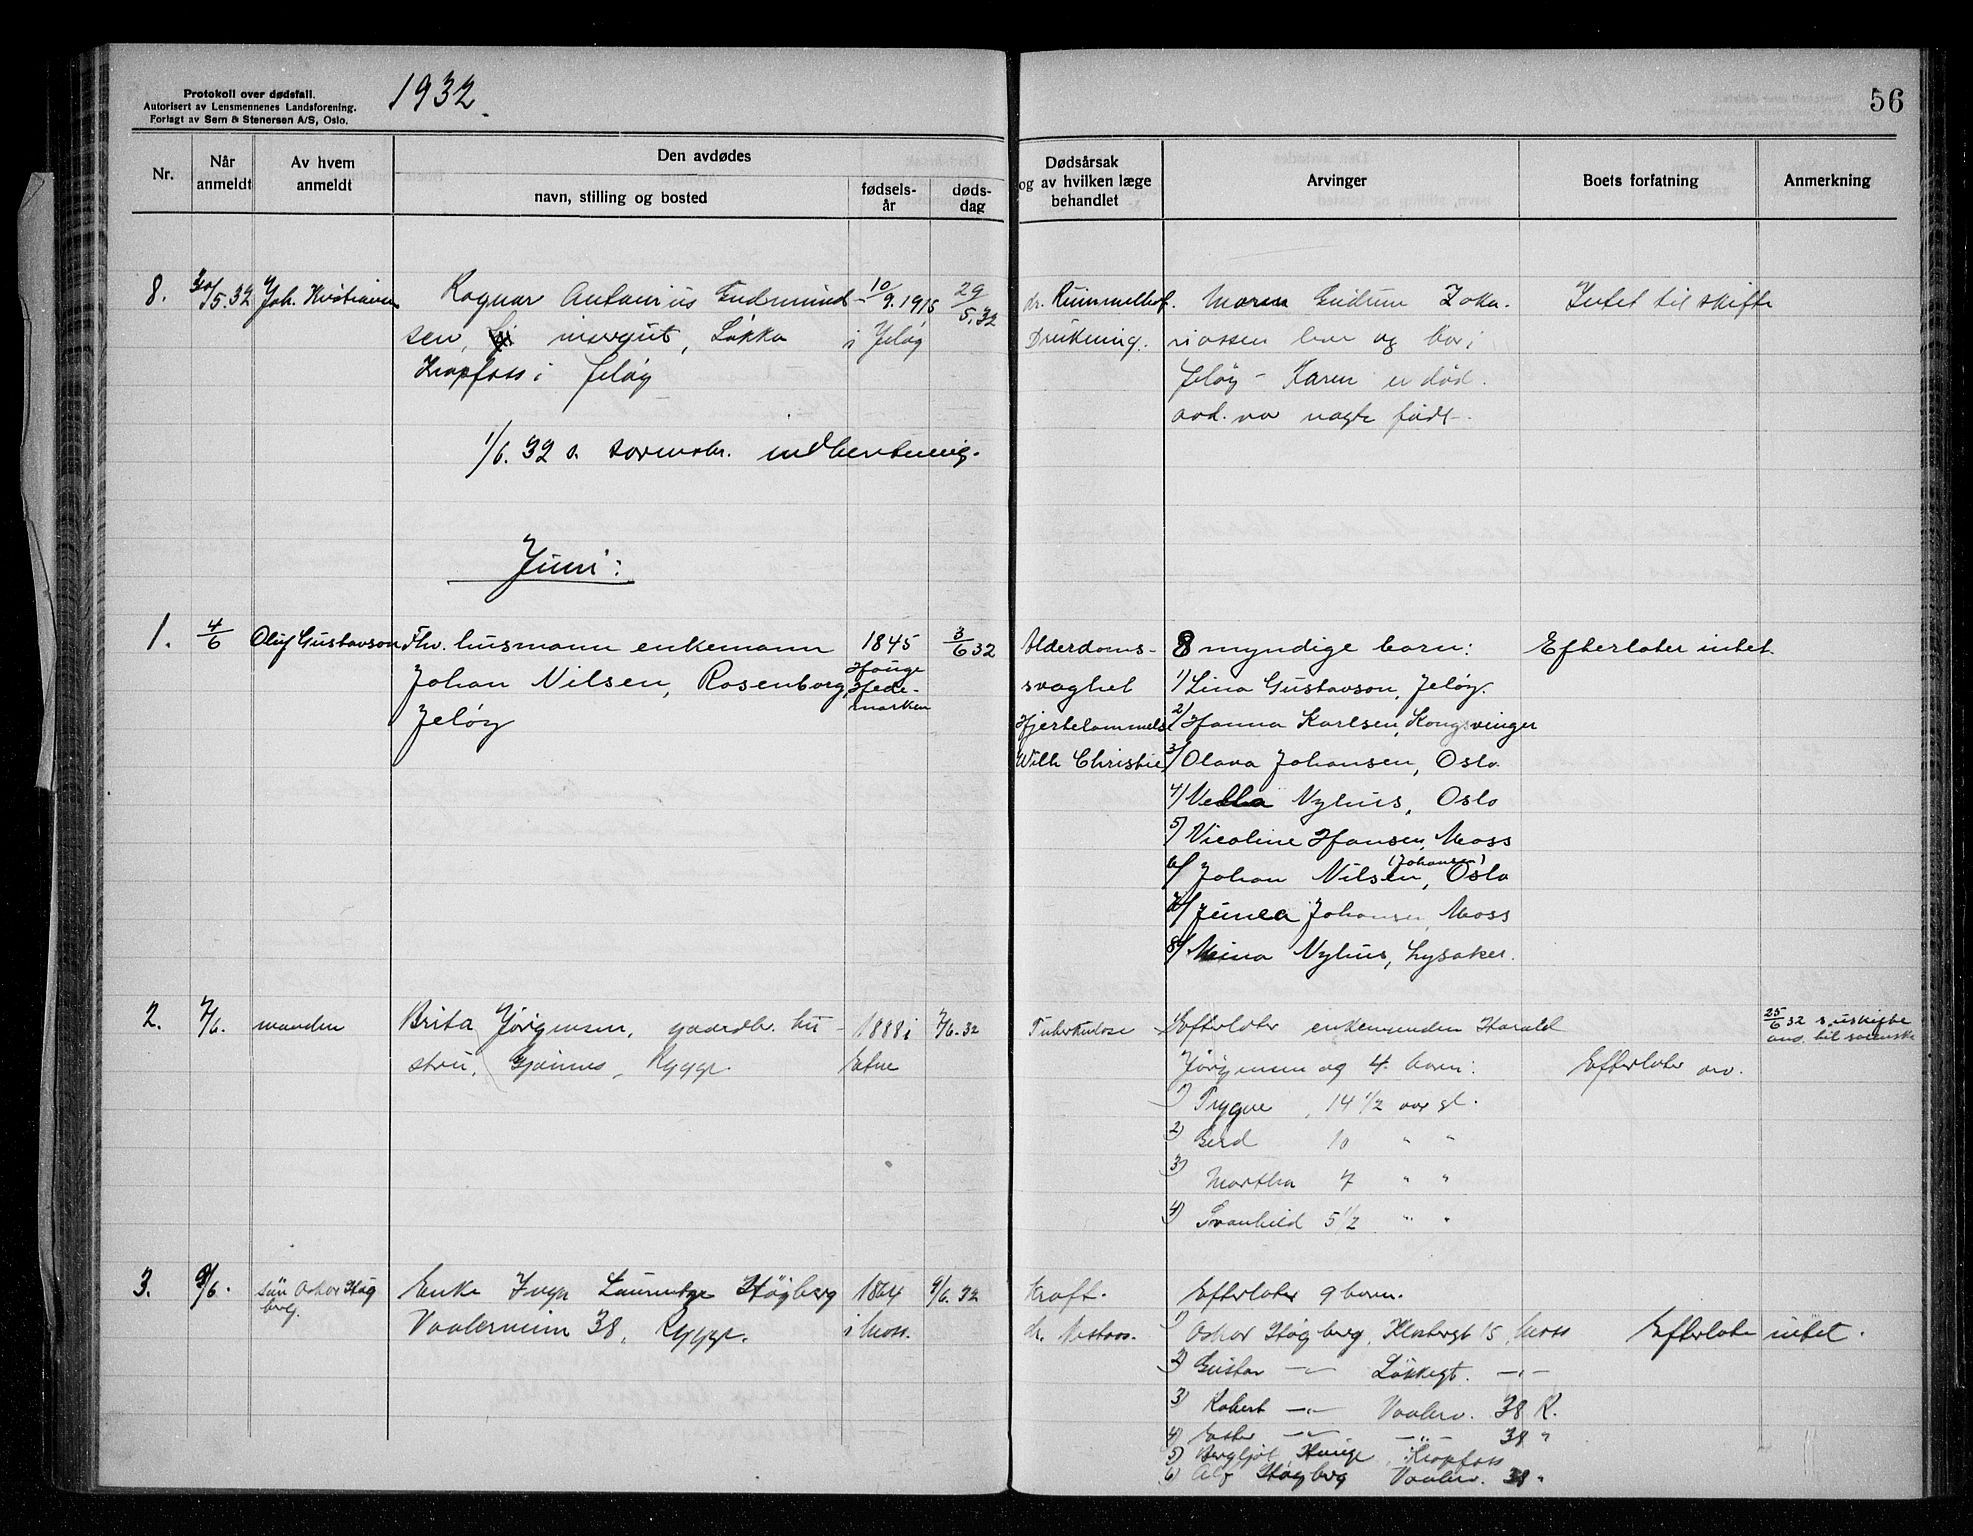 Protokoll over dødsfall.
Autorisert av Lensmennenes Landsforening.
Forlagt av Sem & Stenersen A/S, Oslo.
1932.
56
Nr.
Når anmeldt
Av hvem anmeldt
Den avdødes
navn, stilling og bosted
fødsels-år
døds-dag
Dødsårsak og av hvilken læge behandlet
Arvinger
Boets forfatning
Anmerkning
8. 30/5.32 Joh. Kristiansen Ragnar Antonius Gudmund- 10/9.1915 29/5.32 dr. Rummelhof. Maren Gudrun Zaka- Intet til skifte
sen, Løkka i Jeløy Drukning. riassen bor i
Krapfoss i Jeløy Jeløy - Karen er død.
avd. var uægte født.
1/6.32 s. indberetning.
Juni:
1. 4/6 Oluf Gustavson Fhv. husmann enkemann 1845 3/6 32 Alderdoms- 8 myndige barn: Efterlater intet.
Johan Nilsen, Rosenborg, Hauge svaghet 1) Lina Gustavson, Jeløy.
Hede-
marken
Jeløy Hjertelammelse 2) Hanna Karlsen, Kongsvinger
Wilh Christie 3) Olava Johansen, Oslo
4) Nylius, Oslo
5) Nicoline Hansen, Moss
6) Johan Nilsen (Johansen), Oslo
7) Johansen, Moss
8) Mina Nylius, Lysaker.
2. 7/6. manden Brita Jörgensen, gaardbr. hu- 1888 i 7/6.32 Tuberkulose Efterlater enkemanden Harald 25/6 32
stru, Rygge. Etne Jörgensen og 4 barn: Efterlater
1) Trygve, 14 1/2 aar gl.
2) Gerd 10 " "
3) Martha 7 " "
4) Svanhild 5 1/2 " "
3. 9/6. sön Oskar Høgberg Enke Inga Høgberg 1864 9/6.32 Kræft. Efterlater 9 barn.
Vaalerveien 38, Rygge. i Moss. dr. 1) Oskar Høgberg, Klostergt 15, Moss Efterlater intet.
2) Gustav -"- Løkkegt. -"-
3) Robert -"- Vaalerv. 38 R.
4) Ester -"- -"- 38 "
5) Bergljot Hauge, Krapfoss
6) Alf Høgberg Vaalerv. 38 "